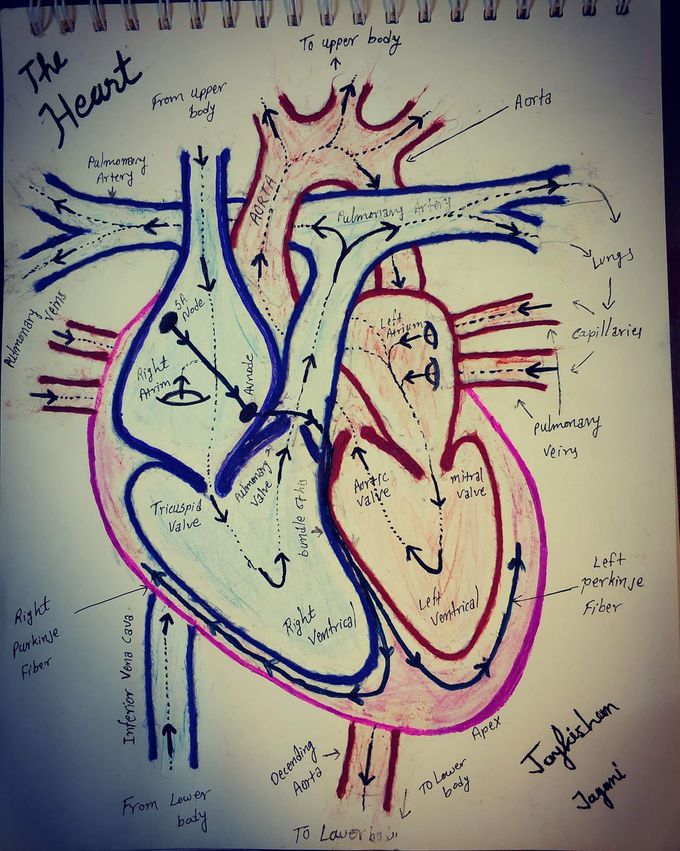 The
Heart
To upper body
From upper
body
Aorta
Pulmonary
Artery
AORTA
Pulmonary Artery
Lungs
SA
Node
Left
Atrium
capillaries
Pulmonary
Veins
Right
Atrim
AVnode
pulmonary
veins
Pulmonary
Valve
Aortic
valve
mitral
valve
Tricuspid
Valve
bundle of his
Left
perkinje
Fiber
Left
Ventrical
Right
Ventrical
Right
Purkinje
Fiber
Inferior Vena Cava
Apex
Decending
Aorta
To Lower
body
From Lower
body
To Lower body
Jaykishan
Jagani